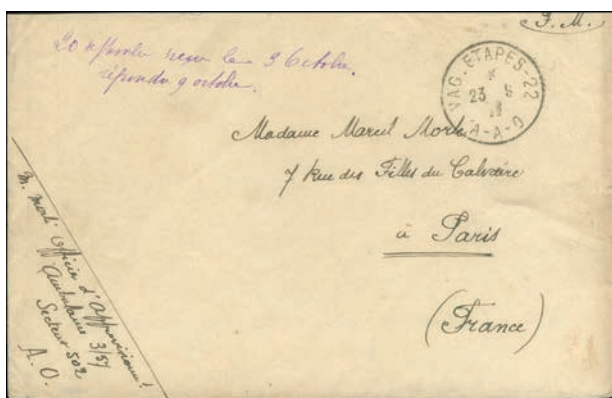 F. M.
20 septembre reçue le 3 Octobre.
répondu 9 octobre.
VAG. ETAPES-22
23
A-A-O
Madame Marcel
7 Rue des Filles du Calvaire
à Paris
(France)
M. Officier d'Approvisionnt
Ambulance 3/57
Secteur 502
A. O.